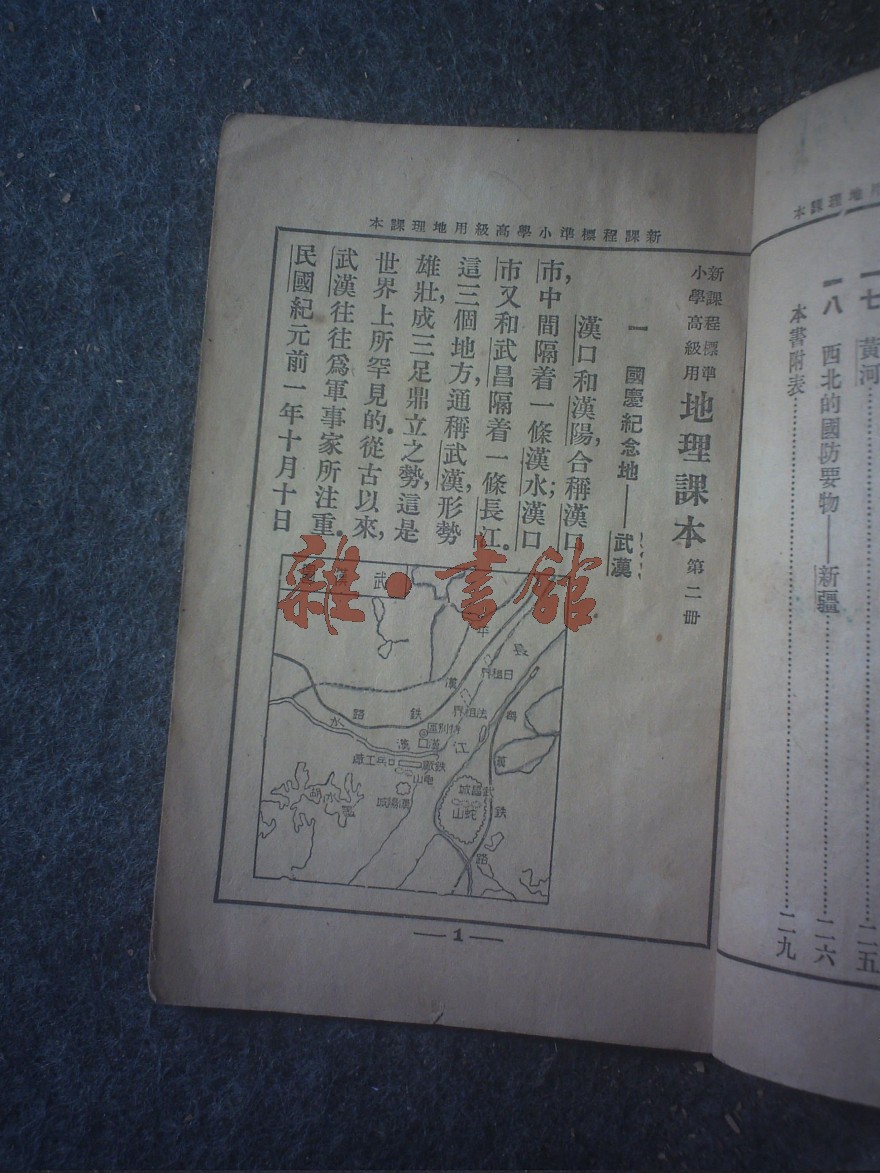 用地理課本
一七 黃河
二五
一八 西北的國防要物——新疆
二六
本書附表
二九
新課程標準小學高級用地理課本
新課程標準
小學高級用
地理課本 第二冊
一 國慶紀念地——武漢
漢口和漢陽,合稱漢口
市,中間隔着一條漢水;漢口
市又和武昌隔着一條長江.
這三個地方,通稱武漢,形勢
雄壯,成三足鼎立之勢,這是
世界上所罕見的.從古以來,
武漢往往爲軍事家所注重.
民國紀元前一年十月十日
武
長
日租界
法租界
特別區
漢口
江
漢
鐵路
漢水
兵工廠
鐵廠
龜山
漢陽城
武昌城
蛇山
粵
鐵
路
湖
雜·書館
1